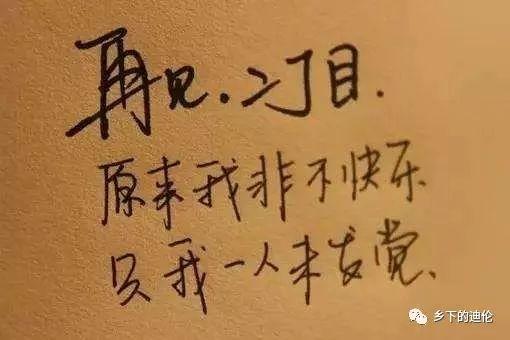 再见.二丁目.
原来我非不快乐
只我一人未发觉.
乡下的迪伦